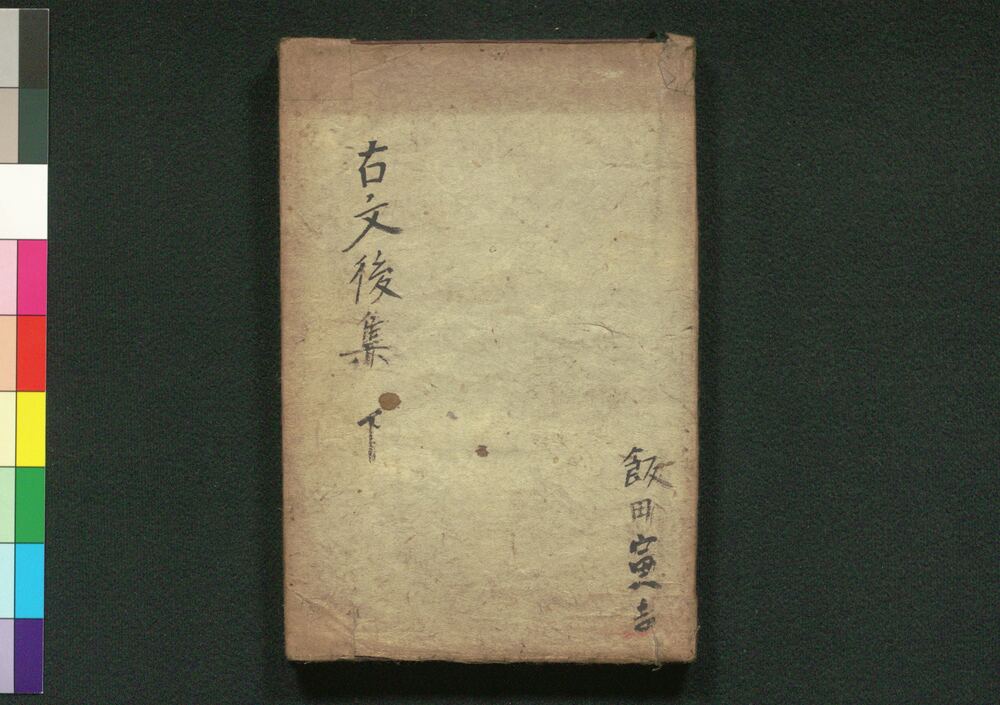 古文後集 下
飯田寅吉